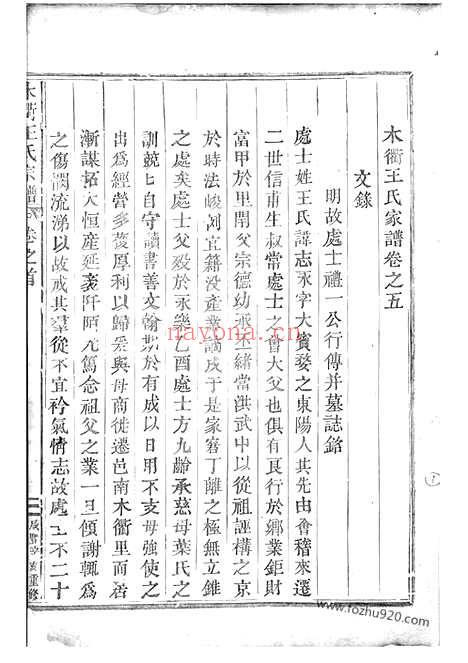 木衢王氏家譜卷之五
文錄
明故處士禮一公行傳并墓誌銘
處士姓王氏諱志永字大賓婺之東陽人其先由會稽來遷
二世信甫生叔常處士之曾大父也俱有良行於鄉業鉅財
富甲於里閈父宗德幼承丕緒當洪武中以從祖誣構之京
於時法峻冽宜籍没產業謫戍于是家窘丁離之極無立錐
之處矣處士父殁於永樂乙酉處士方九齡承慈母葉氏之
訓兢匕自守讀書善文翰期於有成以日用不支母強使之
出為經營多獲厚利以歸爰與母商徙遷邑南木衢里而居
漸謀拓大恒產延袤阡陌尤篤念祖父之業一旦傾謝輒為
之傷潤流涕以故戒其羣從不宜衿氣情志故處士不二十
木衢王氏宗譜
卷之首
重修
nayona.cn
www.fozhu920.com